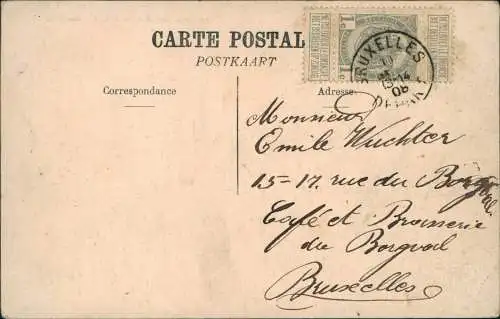 CARTE POSTAL
POSTKAART
1c 1c
BRUXELLES
08
Correspondance
Adresse
Monsieur
Emile Wuchter
15-17, rue du Borgval
Café et Brasserie
du Borgval
Bruxelles